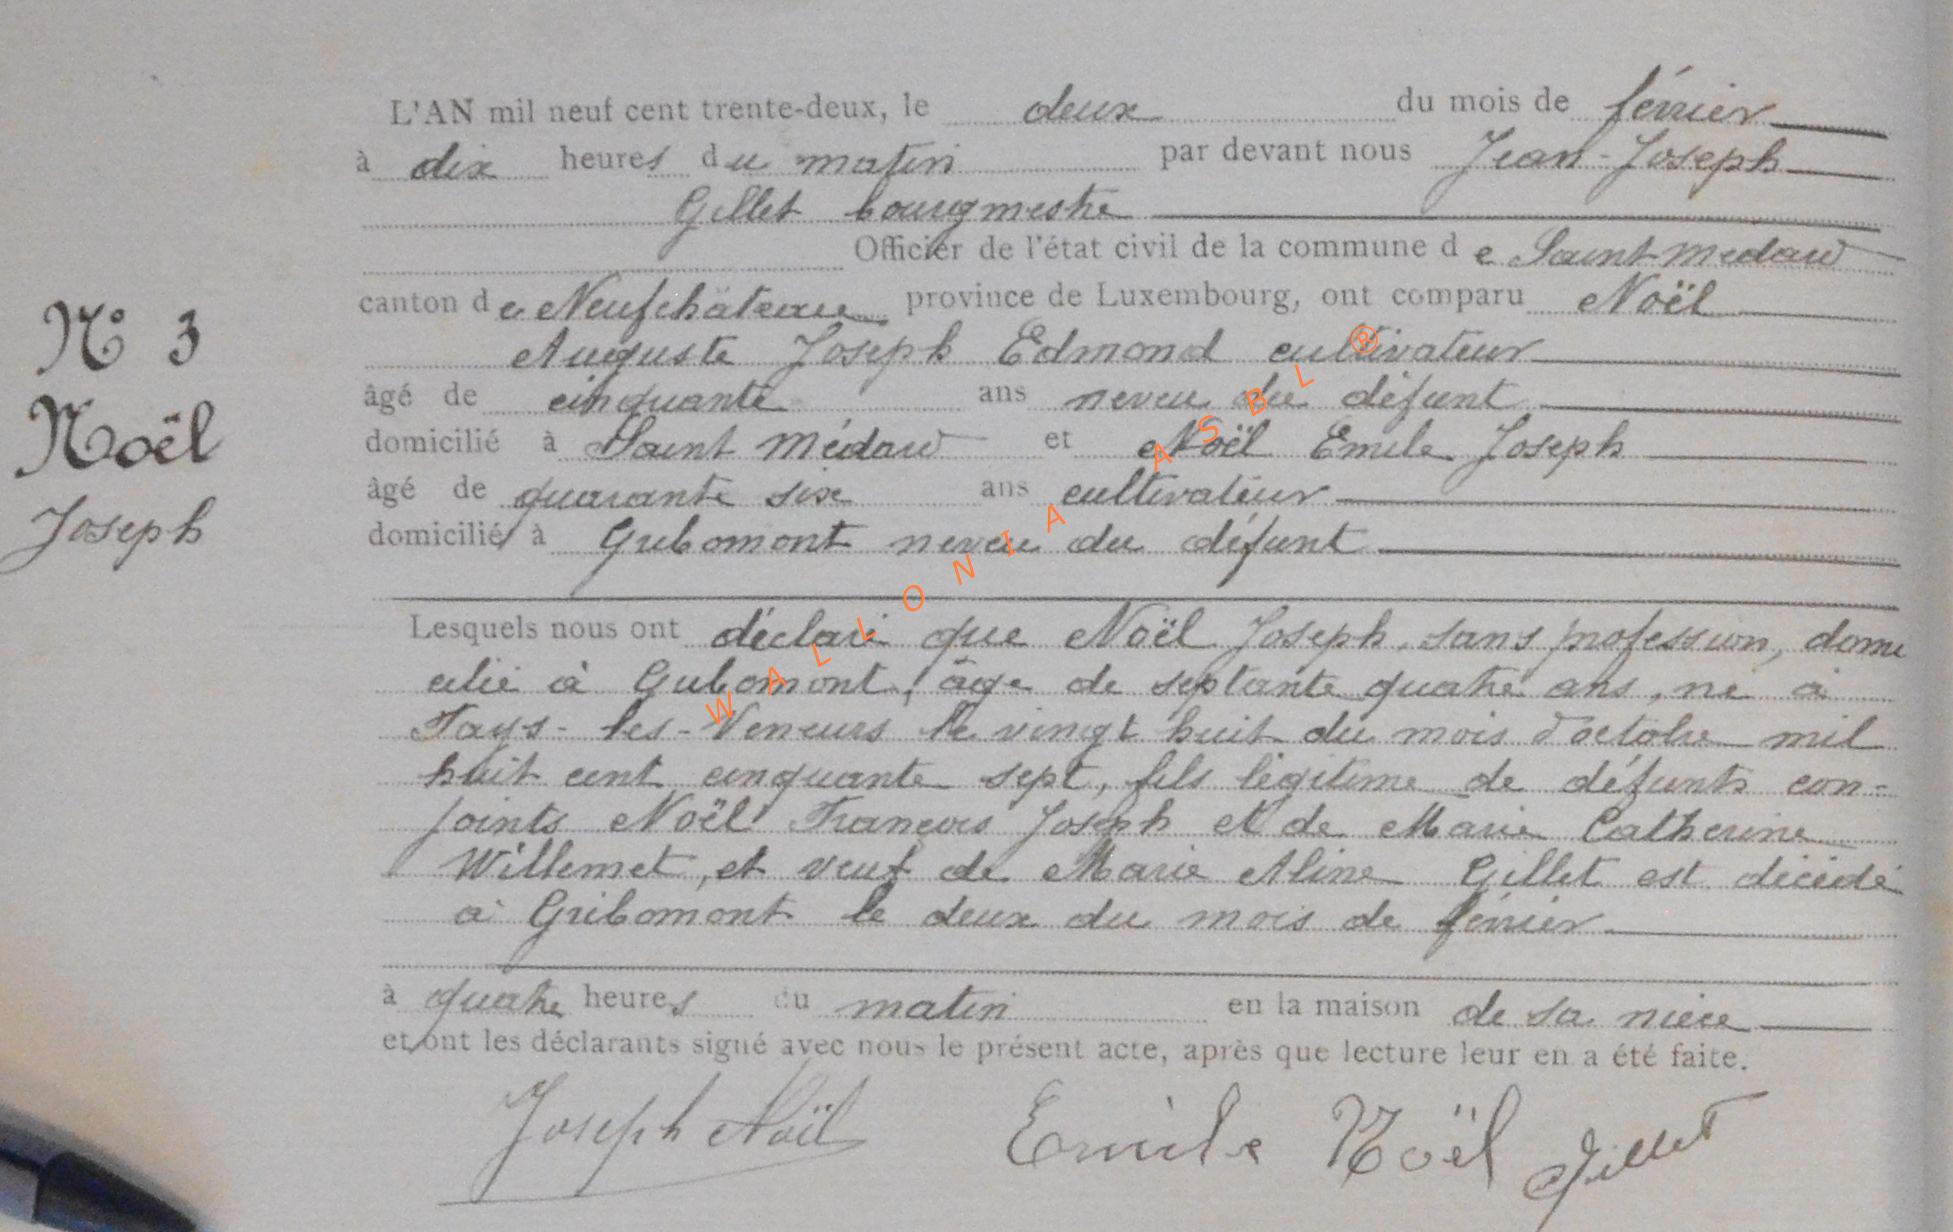 L'AN mil neuf cent trente-deux, le deux du mois de février
à dix heures du matin par devant nous Jean-Joseph
Gillet bourgmestre
Officier de l'état civil de la commune de Saint Médard
canton de Neufchâteau province de Luxembourg, ont comparu Noël
Auguste Joseph Edmond cultivateur
âgé de cinquante ans neveu du défunt
domicilié à Saint Médard et Noël Emile Joseph
âgé de quarante six ans cultivateur
domicilié à Gribomont neveu du défunt
N° 3
Noël
Joseph
Lesquels nous ont déclaré que Noël Joseph, sans profession, domi
cilié à Gribomont, âgé de septante quatre ans, né à
Fays-les-Veneurs le vingt huit du mois d'octobre mil
huit cent cinquante sept, fils légitime de défunts con-
joints Noël François Joseph et de Marie Catherine
Willemet, et veuf de Marie Aline Gillet est décédé
à Gribomont le deux du mois de février
à quatre heures du matin en la maison de sa nièce
et ont les déclarants signé avec nous le présent acte, après que lecture leur en a été faite.
Joseph Noël Emile Noël Gillet
WALLONIA ASBL ®